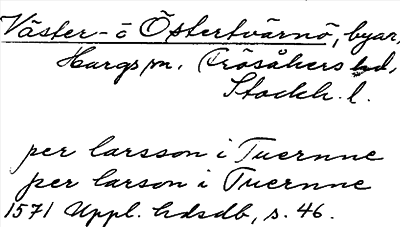 Väster- o Östertvärnö, byar,
Hargs sn, Frösåkers hd,
Stockh. l.
per larsson i Tuernne
per larson i Tuernne
1571 Uppl. hdsdb, s. 46.